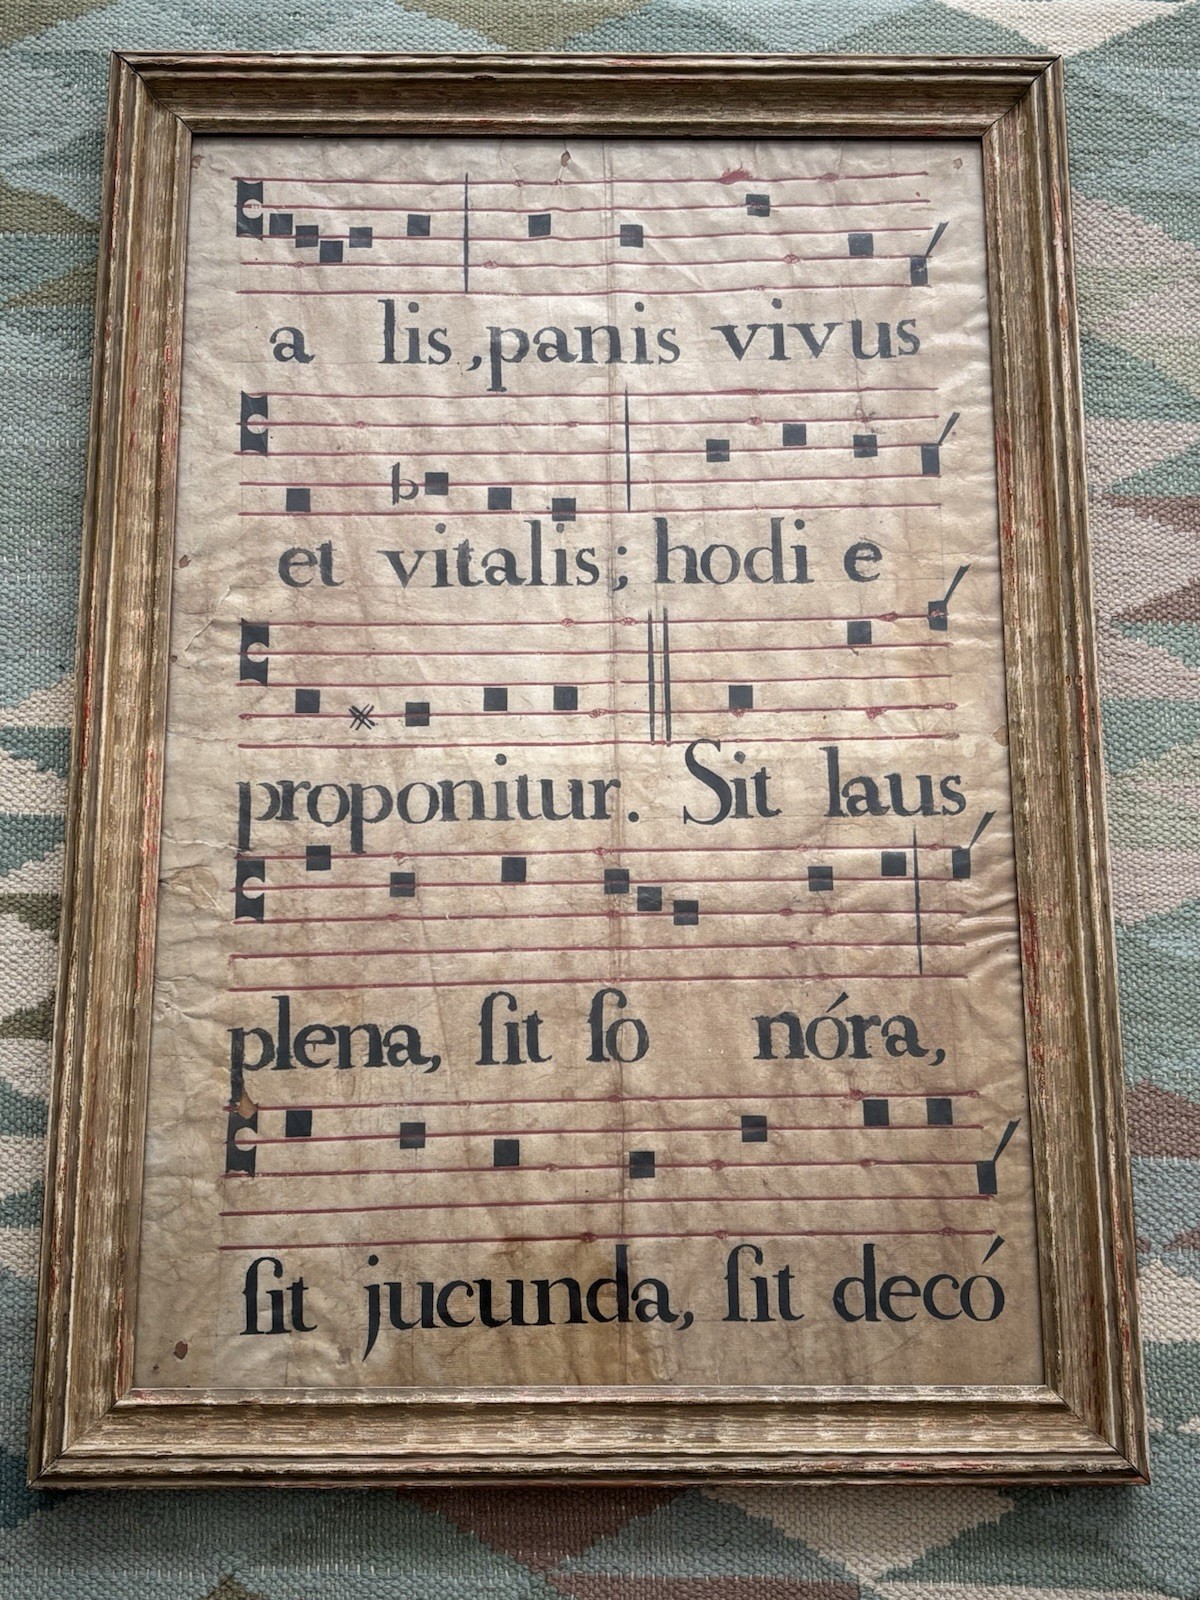 a lis, panis vivus
et vitalis; hodi e
proponitur. Sit laus
plena, ſit ſo nóra,
ſit jucunda, ſit decó